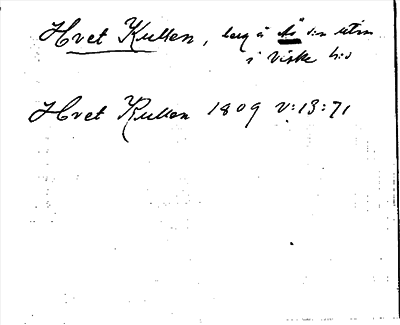 Hvet Kullen, berg å Ås sn utm
i Viske hd
Hvet Kullen 1809 V:13:71